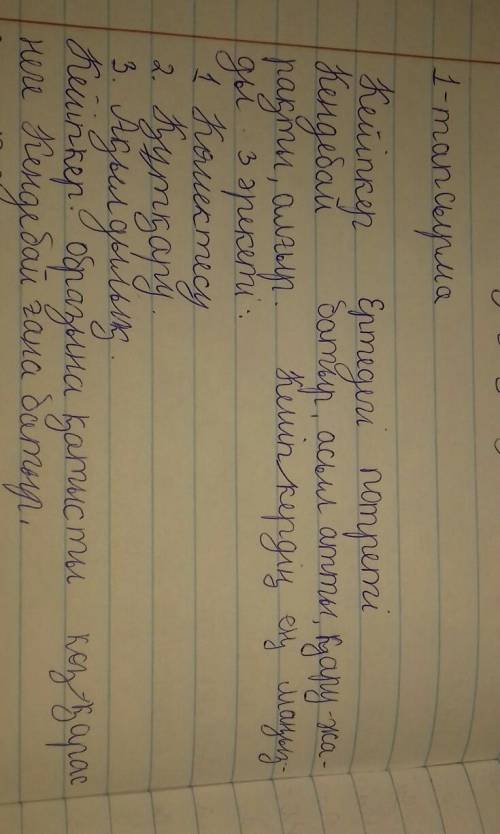 1-тапсырма
Кейіпкер Ертедегі потреті
Кендебай батыр, асыл атты, қару-жа-
рақты, алғыр. Кейіпкердің ең маңыз-
ды 3 әрекеті:
1 Көмектесу
2. Құтқару.
3. Ақылдылық.
Кейіпкер образына қатысты көзқарас
неге Кендебай ғана батыр,